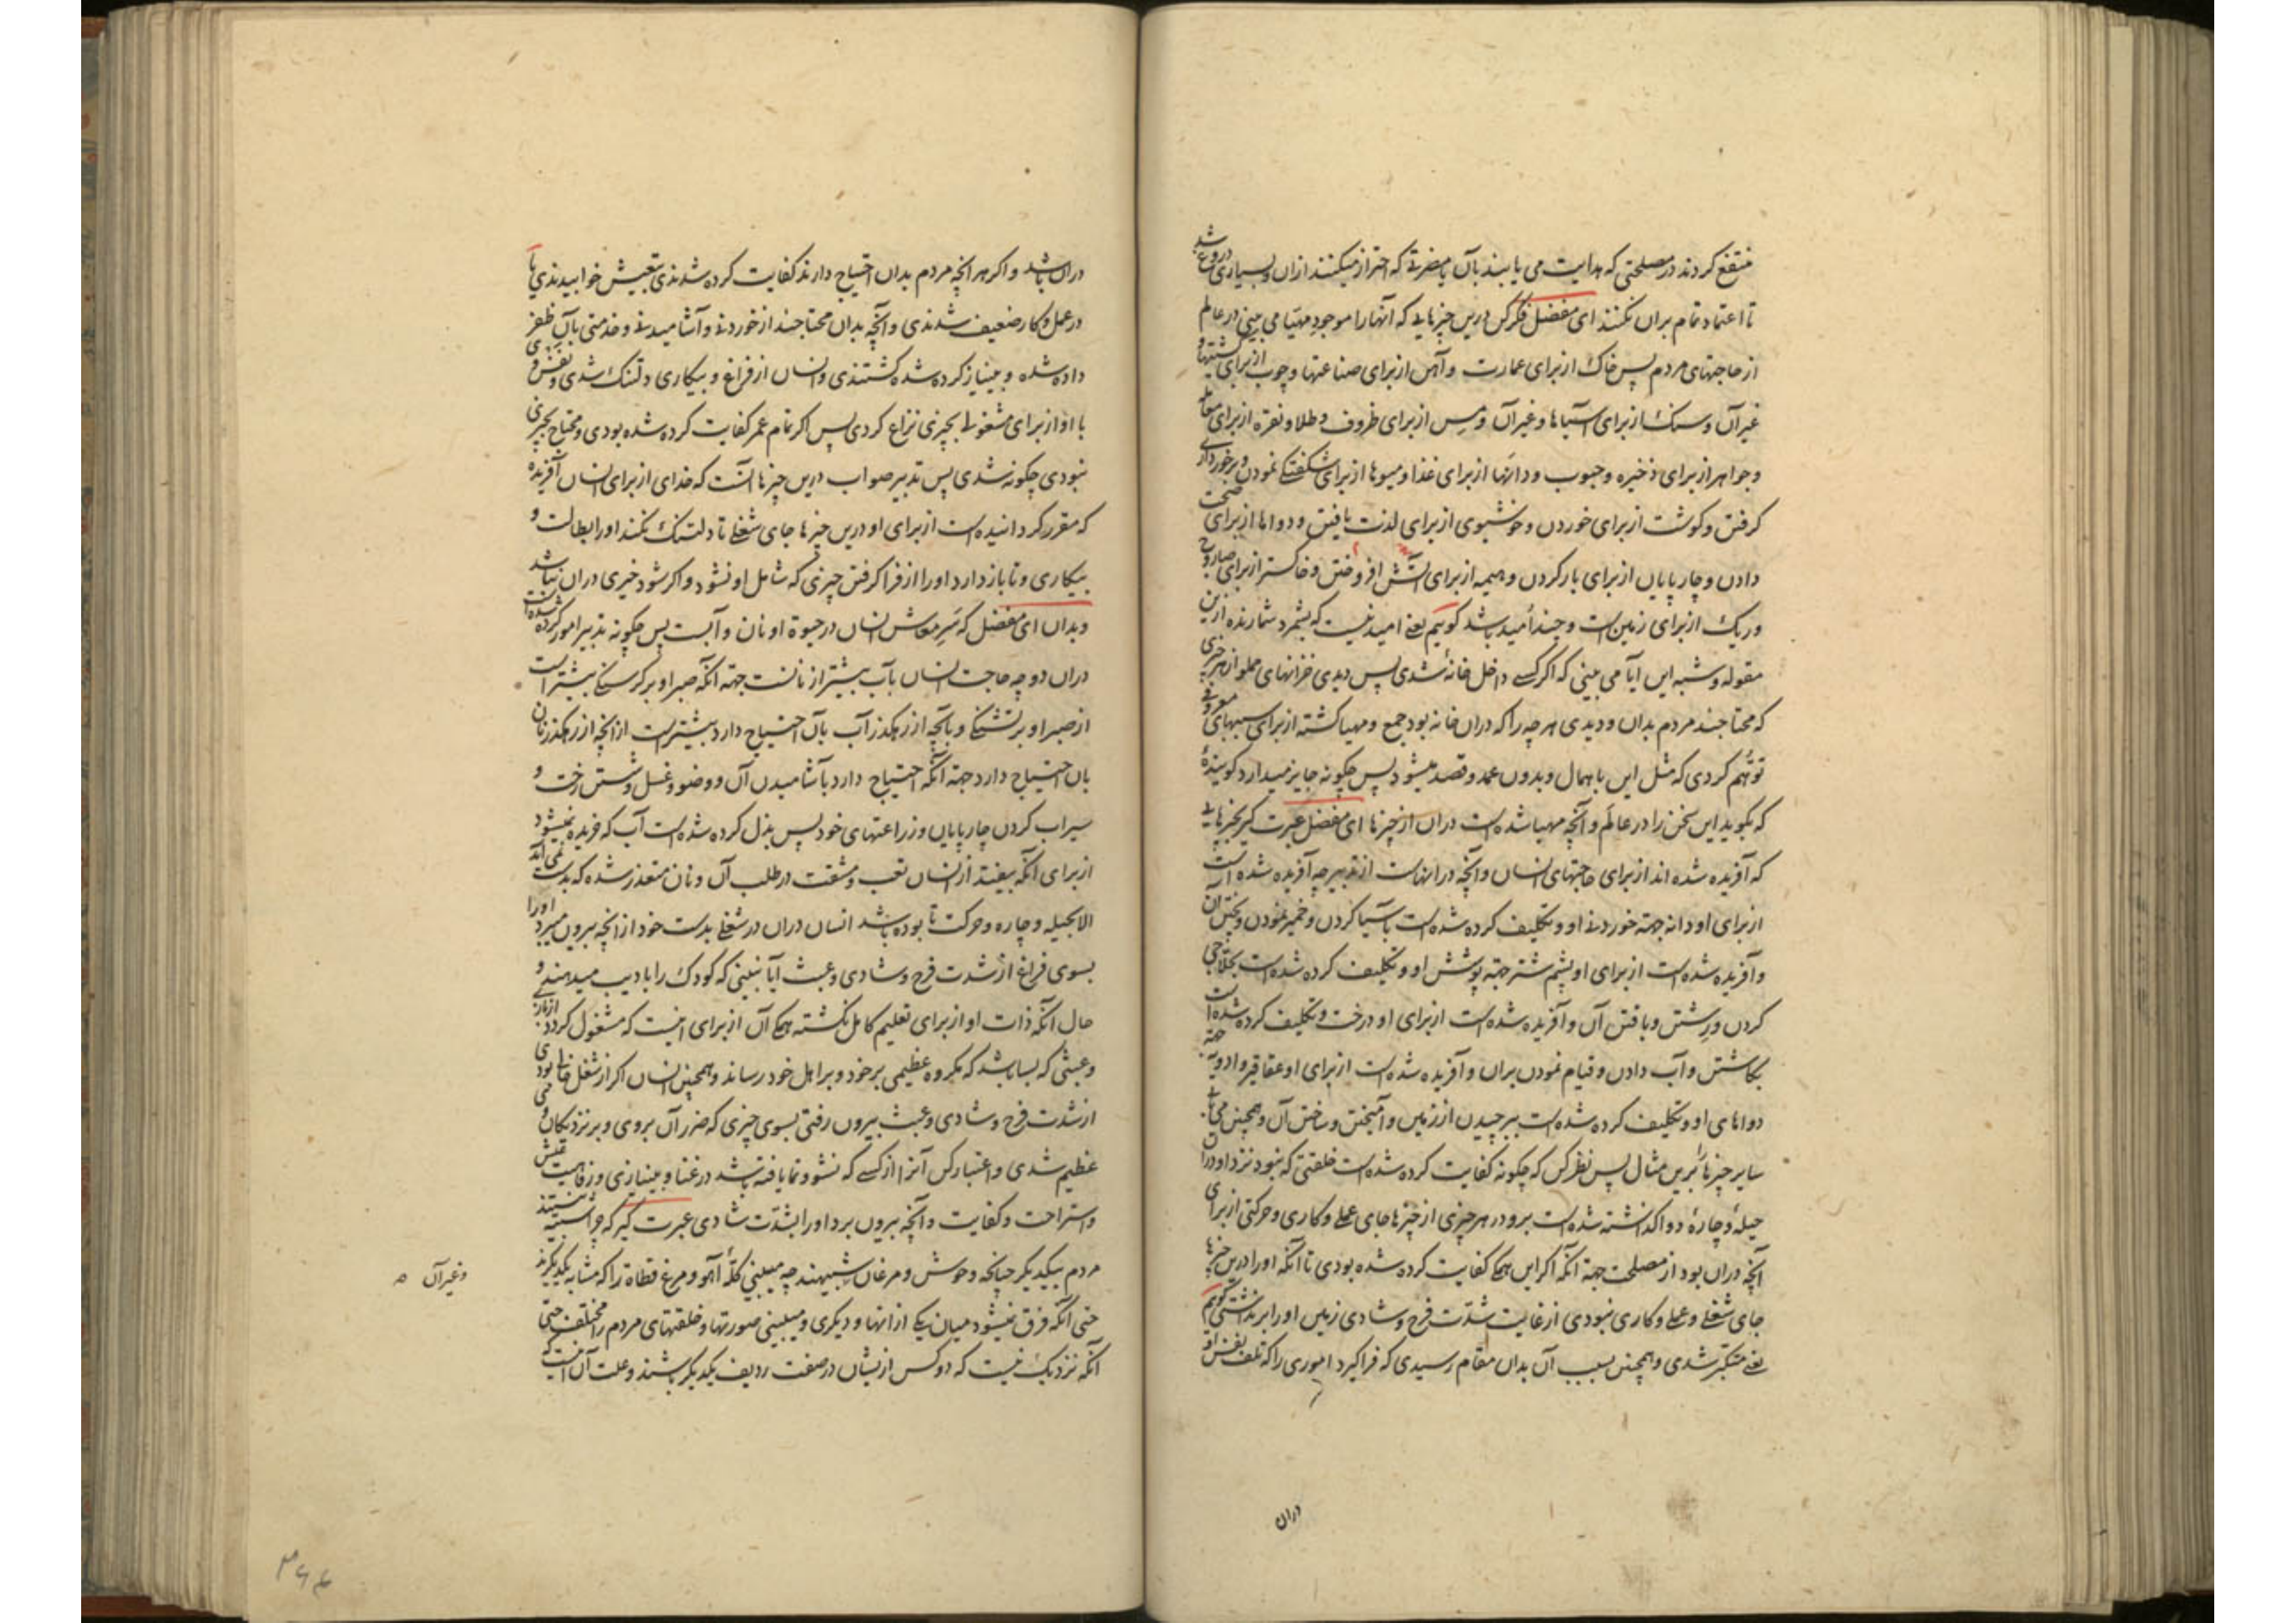 منتفع کردند در مصلحتی که هدایت می یابند بآن یا مضرتی که احتراز میکنند ازان و بسیاری دروغ باشد
تا اعتماد تمام بران نکنند ای مفضل فکر کن درین چیزهایی که آنها را موجود مهیا می بینی در عالم
از حاجتهای مردم پس خاک از برای عمارت و آهن از برای صناعتها و چوب از برای کشتیها و
غیر آن و سنک از برای آسیاها و غیر آن و مس از برای ظروف و طلا و نقره از برای معامله
و جواهر از برای ذخیره و حبوب و دانها از برای غذا و میوها از برای شکفتکی نمودن و برخورداری
کرفتن و کوشت از برای خوردن و خوشبوی از برای لذت یافتن و دواها از برای صحت
دادن و چارپایان از برای بار کردن و هیمه از برای آتش افروختن و خاکستر از برای صاروج
و ریک از برای زمین است و چند امید باشد کوییم یعنی امید نیست که بشمرد شمارنده ازین
مقوله و شبه این آیا می بینی که اکر کسی داخل خانۀ شدی پس دیدی خزانهای مملو از هر چیزی
که محتاجند مردم بدان و دیدی هر چه را که دران خانه بود جمع و مهیا کشته از برای سببهای معروفی
توهم کردی که مثل این باهمال و بدون عمد و قصد میشود پس چکونه جایز میدارد کوینده
که بکوید این سخن را در عالم و آنچه مهیا شده است دران از چیزها ای مفضل عبرت کیر بچیزهایی
که آفریده شده اند از برای حاجتهای انسان و آنچه در انهاست از تدبیر چه آفریده شده است
از برای او دانه جهته خوردنی او و تکلیف کرده شده است بآسیا کردن و خمیر نمودن و پختن آن
و آفریده شده است از برای او پشم شتر جهته پوشش او و تکلیف کرده شده است بحلاجی
کردن و رشتن و بافتن آن و آفریده شده است از برای او درخت و تکلیف کرده شده است
بکاشتن و آب دادن و قیام نمودن بران و آفریده شده است از برای او عقاقیر و ادویه جهته
دواهای او و تکلیف کرده شده است ببرچیدن از زمین و آمیختن و ساختن آن و همچنین می یابی
سایر چیزها را برین مثال پس نظر کن که چکونه کفایت کرده شده است خلقتی که نبود نزد او دران
حیلۀ و چارۀ و واکذاشته شده است برو در هر چیزی از چیزها جای عملی و کاری و حرکتی از برای
آنچه دران بود از مصلحت جهته آنکه اکر این همکی کفایت کرده شده بودی تا آنکه او را درین چیزها
جای شغلی و عملی و کاری نبودی از غایت شدت فرح و شادی زمین او را برنداشتی کوییم
یعنی متکبر شدی و همچنین بسبب آن بدان مقام رسیدی که فراکیرد اموری را که تلف نفس او
دران
دران باشد و اکر هر آنچه مردم بدان احتیاج دارند کفایت کرده شدندی بتعیش خوابیدندی یا
در عمل و کار ضعیف شدندی و آنچه بدان محتاجند از خوردنی و آشامیدنی و خدمتی بآن ظفر
داده شده و بینیاز کرده شده کشتندی و انسان از فراغ و بیکاری دلتنک شدی و نفس وی
با او از برای مشغولی بچیزی نزاع کردی پس اکر تمام عمر کفایت کرده شده بودی و محتاج بچیزی
نبودی چکونه شدی پس تدبیر صواب درین چیزها آنست که خدای از برای انسان آفریده
که مقرر کردانیده است از برای او درین چیزها جای شغلی تا دلتنک نکند او را بطالت و
بیکاری و تا باز دارد او را از فراکرفتن چیزی که شامل او نشود و اکر شود خیری دران نباشد
و بدان ای مفضل که سر معاش انسان در حیوة او نان و آبست پس چکونه تدبیر امور کرده شده است
دران دو چه حاجت انسان بآب بیشتر از نانست جهته آنکه صبر او بر کرسنکی بیشتر است
از صبر او بر تشنکی و بآنچه از رهکذر آب بآن احتیاج دارد بیشتر است از آنچه از رهکذر نان
بآن احتیاج دارد جهته آنکه احتیاج دارد بآشامیدن آن و وضو و غسل و شستن رخت و
سیراب کردن چارپایان و زراعتهای خود پس بذل کرده شده است آب که خریده نمیشود
از برای آنکه بیفتد از انسان تعب و مشقت در طلب آن و نان متعذر شده که بدست نمی آید
الا بحیله و چاره و حرکت تا بوده باشد انسان دران در شغلی بدست خود از آنچه بیرون میبرد او را
بسوی فراغ از شدت فرح و شادی و عبث آیا نبینی که کودک را بادیب میدهند و
حال آنکه ذات او از برای تعلیم کامل نکشته همکی آن از برای اینست که مشغول کردد از بازی
و عبثی که بسا باشد که مکروه عظیمی بر خود و بر اهل خود رساند و همچنین انسان اکر از شغل خالی بودی
از شدت فرح و شادی و عبث بیرون رفتی بسوی چیزی که ضرر آن بروی و بر نزدیکان وی
عظیم شدی و اعتبار کن آنرا از کسی که نشو و نما یافته باشد در غنا و بینیازی و رفاهیت عیش
و استراحت و کفایت و آنچه بیرون برد او را بشدت شادی عبرت کیر که چرا شبیه نیستند
مردم بیکدیکر چنانچه وحوش و مرغان شبیهند چه میبینی کلۀ آهو و مرغ قطاة را که مشابه یکدیکرند
حتی آنکه فرق نمیشود میان یکی از انها و دیکری و میبینی صورتها و خلقتهای مردم را مختلف حتی
آنکه نزدیک نیست که دو کس از یشان در صفت ردیف یکدیکر باشند و علت آن اینست که
و غیر آن